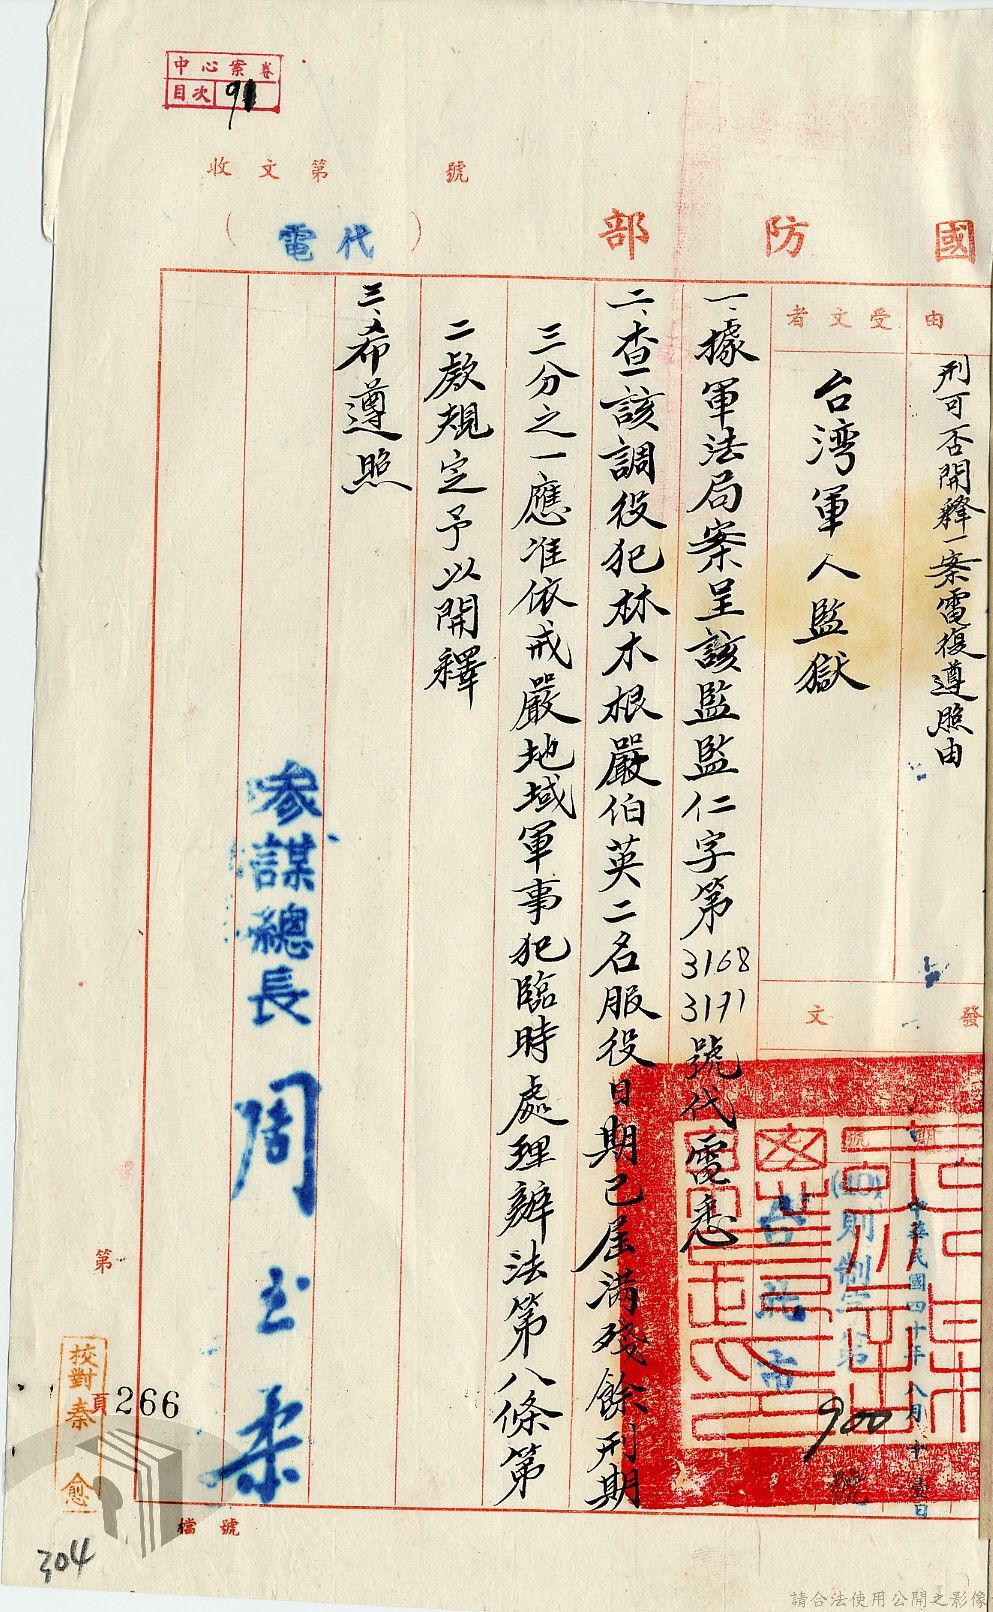 中心案卷
目次 91
收文第 號
國防部
（代電）
由
刑可否開釋一案電復遵照由
受文者
台湾軍人監獄
發文
中華民國四十年八月十壹日
(40)則制字第
900
號
台北市
一、據軍法局案呈該監監仁字第3168 3171號代電悉
二、查該調役犯林木根嚴伯英二名服役日期已屆满殘餘刑期
三分之一應准依戒嚴地域軍事犯臨時處理辦法第八條第
二款規定予以開釋
三、希遵照
參謀總長周至柔
第
頁
266
校對秦愈
檔號
304
請合法使用公開之影像